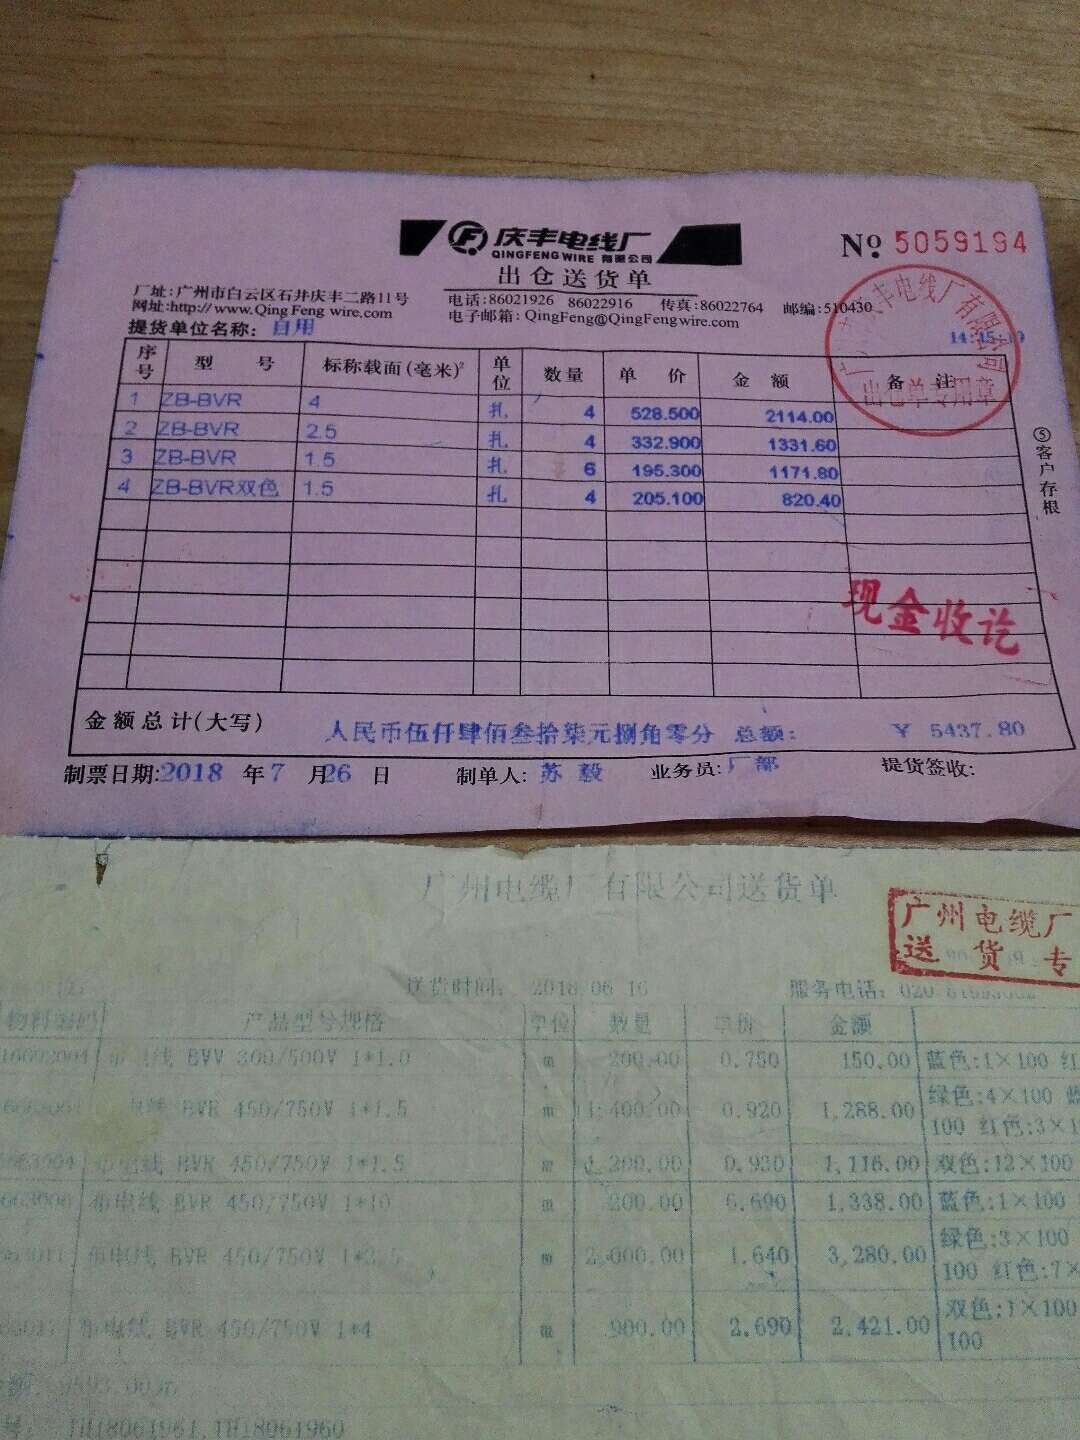 庆丰电线厂
QINGFENG WIRE 有限公司
№ 5059194
出仓送货单
厂址:广州市白云区石井庆丰二路11号
电话:86021926 86022916 传真:86022764 邮编:510430
网址:http://www.QingFengwire.com
电子邮箱:QingFeng@QingFengwire.com
提货单位名称: 自用
丰电线厂有限公司
出仓单专用章
序号 型 号 标称载面(毫米)² 单位 数量 单 价 金 额 备 注
1 ZB-BVR 4 扎 4 528.500 2114.00
2 ZB-BVR 2.5 扎 4 332.900 1331.60
3 ZB-BVR 1.5 扎 6 195.300 1171.80
4 ZB-BVR双色 1.5 扎 4 205.100 820.40
⑤客户存根
现金收讫
金额总计(大写) 人民币伍仟肆佰叁拾柒元捌角零分 总额: ￥ 5437.80
制票日期:2018 年 7 月 26 日 制单人: 苏毅 业务员: 厂部 提货签收:
广州电缆厂有限公司送货单
广州电缆厂
送 货 专
送货时间: 2018-06-16 服务电话: 020-
物料编码 产品型号规格 单位 数量 单价 金额
BVV 300/500V 1*1.0 m 200.00 0.750 150.00 蓝色:1×100 红
电线 BVR 450/750V 1*1.5 m 1,400.00 0.920 1,288.00 绿色:4×100 蓝
100 红色:3×1
布电线 BVR 450/750V 1*1.5 m 1,200.00 0.930 1,116.00 双色:12×100
布电线 BVR 450/750V 1*10 m 200.00 6.690 1,338.00 蓝色:1×100
布电线 BVR 450/750V 1*2.5 m 2,000.00 1.640 3,280.00 绿色:3×100
100 红色:7×
布电线 BVR 450/750V 1*4 m 900.00 2.690 2,421.00 双色:1×100
100
9593.00元
号: TH18061961,TH18061960